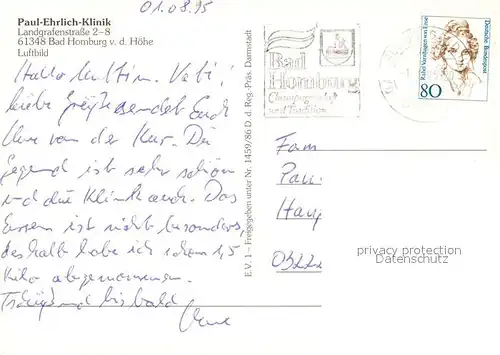 01.08.95
Paul-Ehrlich-Klinik
Landgrafenstraße 2-8
61348 Bad Homburg v. d. Höhe
Luftbild
Hallo
liebe Grüße sendet Euch
von der Kur. Die
Gegend ist sehr schön
und die Klinik auch. Das
Essen ist nicht besonders,
deshalb habe ich schon 1,5
Kilo abgenommen.
Tschüß und bis bald
E.V. 1 – Freigegeben unter Nr. 1459/86 D. d. Reg.-Präs. Darmstadt
Bad
Homburg
Champagnerluft
und Tradition
Rahel Varnhagen von Ense
Deutsche Bundespost
80
Fam
Pau
Hay
privacy protection
Datenschutz